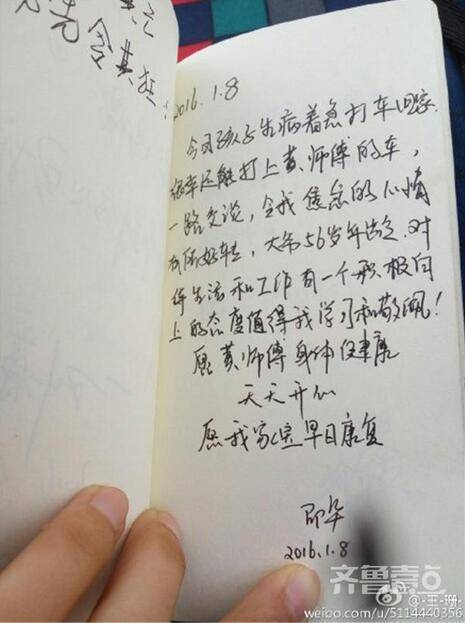 含其
2016.1.8
今日孩子生病着急打车回家.
很幸运能打上黄师傅的车,
一路交谈,令我焦急的心情
有所好转,大爷56岁年龄.对
待生活和工作有一个积极向
上的态度值得我学习和敬佩!
愿黄师傅身体健康
天天开心
愿我家宝早日康复
邵华
2016.1.8
齐鲁壹点
@-王-珊-
weibo.com/u/5114440356